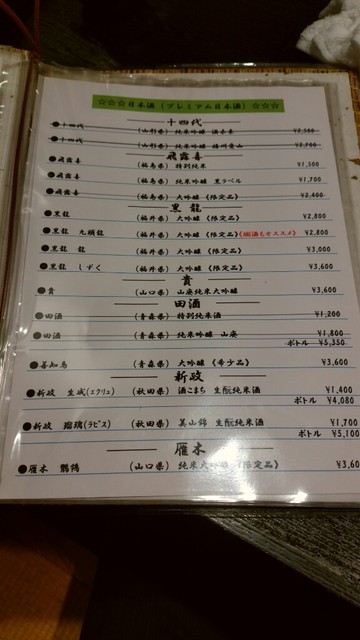 ☆☆☆日本酒(プレミアム日本酒)☆☆☆
十四代
●十四代 (山形県) 純米吟醸 酒未来 ¥2,500
●十四代 (山形県) 純米吟醸 播州愛山 ¥2,700
飛露喜
●飛露喜 (福島県) 特別純米 ¥1,500
●飛露喜 (福島県) 純米吟醸 黒ラベル ¥1,700
●飛露喜 (福島県) 大吟醸 《限定品》 ¥2,400
黒龍
●黒龍 (福井県) 大吟醸 《限定品》 ¥2,800
●黒龍 九頭龍 (福井県) 大吟醸 《限定品》(燗酒もオススメ) ¥2,800
●黒龍 龍 (福井県) 大吟醸 《限定品》 ¥3,000
●黒龍 しずく (福井県) 大吟醸 《限定品》 ¥3,600
貴
●貴 (山口県) 山廃純米大吟醸 ¥3,600
田酒
●田酒 (青森県) 特別純米酒 ¥1,200
●田酒 (青森県) 純米吟醸 山廃 ¥1,800
ボトル ¥5,350
●善知鳥 (青森県) 大吟醸 《希少品》 ¥3,600
新政
●新政 生成(エクリュ) (秋田県) 酒こまち 生酛純米酒 ¥1,400
ボトル ¥4,080
●新政 瑠璃(ラピス) (秋田県) 美山錦 生酛純米酒 ¥1,700
ボトル ¥5,100
雁木
●雁木 鶺鴒 (山口県) 純米大吟醸 《限定品》 ¥3,60